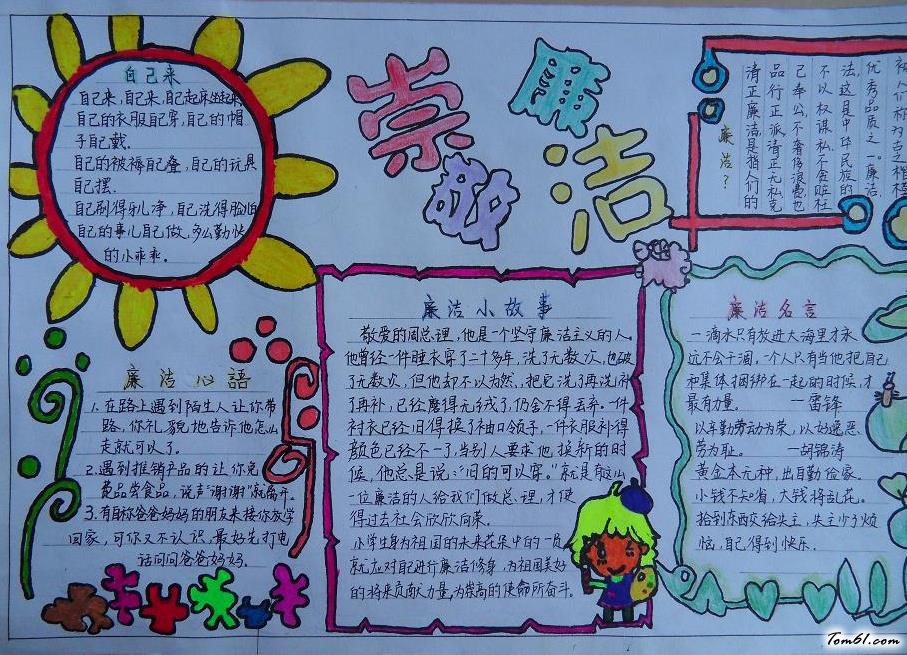 自己来
自己来,自己来,自己起床坐起来
自己的衣服自己穿,自己的帽
子自己戴.
自己的被褥自己叠,自己的玩具
自己摆.
自己刷得牙儿净,自己洗得脸
自己的事儿自己做,多么勤快
的小乖乖。
崇
敬
廉
洁
廉洁?
优秀品质之一。廉洁,
法,这是中华民族的
不以权谋私,不贪赃枉
己奉公,不奢侈浪费,也
品行正派,清正无私,克
清正廉洁,是指人们的
廉洁心語
1.在路上遇到陌生人让你带
路,你礼貌地告诉他怎么
走就可以了.
2.遇到推销产品的让你免
费品尝食品,说声“谢谢”就离开.
3.有自称爸爸妈妈的朋友来接你放学
回家,可你又不认识,最好先打电
话问问爸爸妈妈.
廉洁小故事
敬爱的周总理,他是一个坚守廉洁主义的人.
他曾经一件睡衣穿了二十多年,洗了无数次,也破
了无数次,但他却不以为然,把它洗了再洗,补
了再补,已经磨得无绒了,仍舍不得丢弃。一件
衬衣已经旧得换了袖口领子,一件衣服补得
颜色已经不一了,当别人要求他换新的时
候,他总是说:“旧的可以穿。”就是有这
一位廉洁的人给我们做总理,才使
得过去社会欣欣向荣.
小学生身为祖国的未来花朵中的一员
就应对自己进行廉洁修身,为祖国美好
的将来贡献力量,为崇高的使命所奋斗.
廉洁名言
一滴水只有放进大海里才永
远不会干涸,一个人只有当他把自己
和集体捆绑在一起的的时候才
最有力量. —雷锋
以辛勤劳动为荣,以好逸恶
劳为耻。 —胡锦涛
黄金本无种,出自勤俭家.
小钱不知省,大钱将乱花。
拾到东西交给失主,失主少了烦
恼,自己得到快乐.
Tom61.com